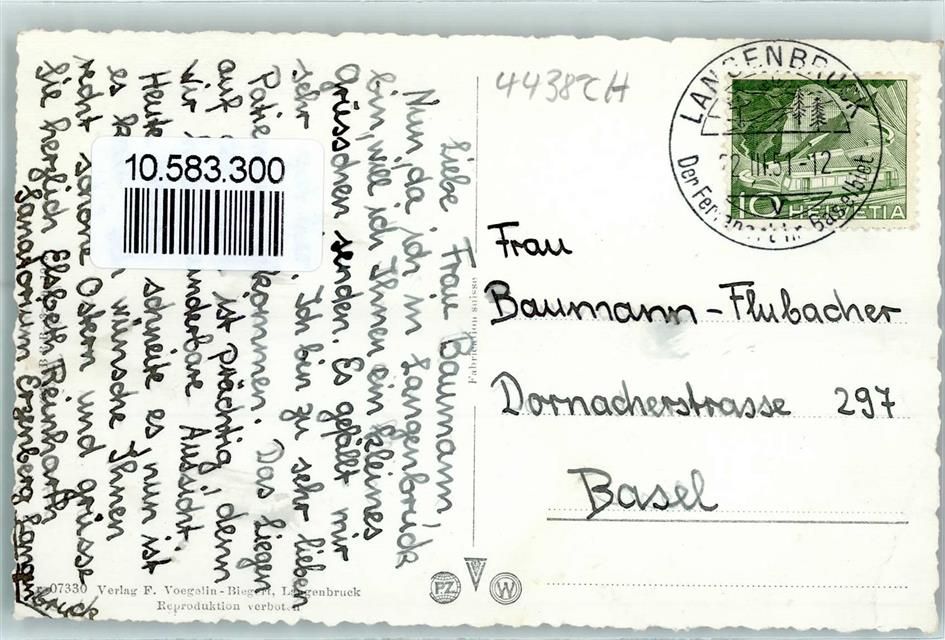 Liebe Frau Baumann!
Nun, da ich in Langenbruck
bin, will ich Ihnen ein kleines
Grüsschen senden. Es gefällt mir
sehr Ich bin zu sehr lieben
Patie kommen. Das Liegen
auf ist prächtig, denn
wir nderbare Aussicht.
Heute schneite es, nun ist
es wünsche Ihnen
recht schöne Ostern und grüsse
Sie herzlich Elsbeth Reinharth
Sanatorium Erzenberg Langenbruck
10.583.300
4438 CH
LANGENBRUCK
22.III.51-12
Der Ferienort im Baselbiet
10
HELVETIA
Frau
Baumann-Flubacher
Dornacherstrasse 297
Basel
Fabrication suisse
PZ
W
07330 Verlag F. Voegelin-Bieg Langenbruck
Reproduktion verboten